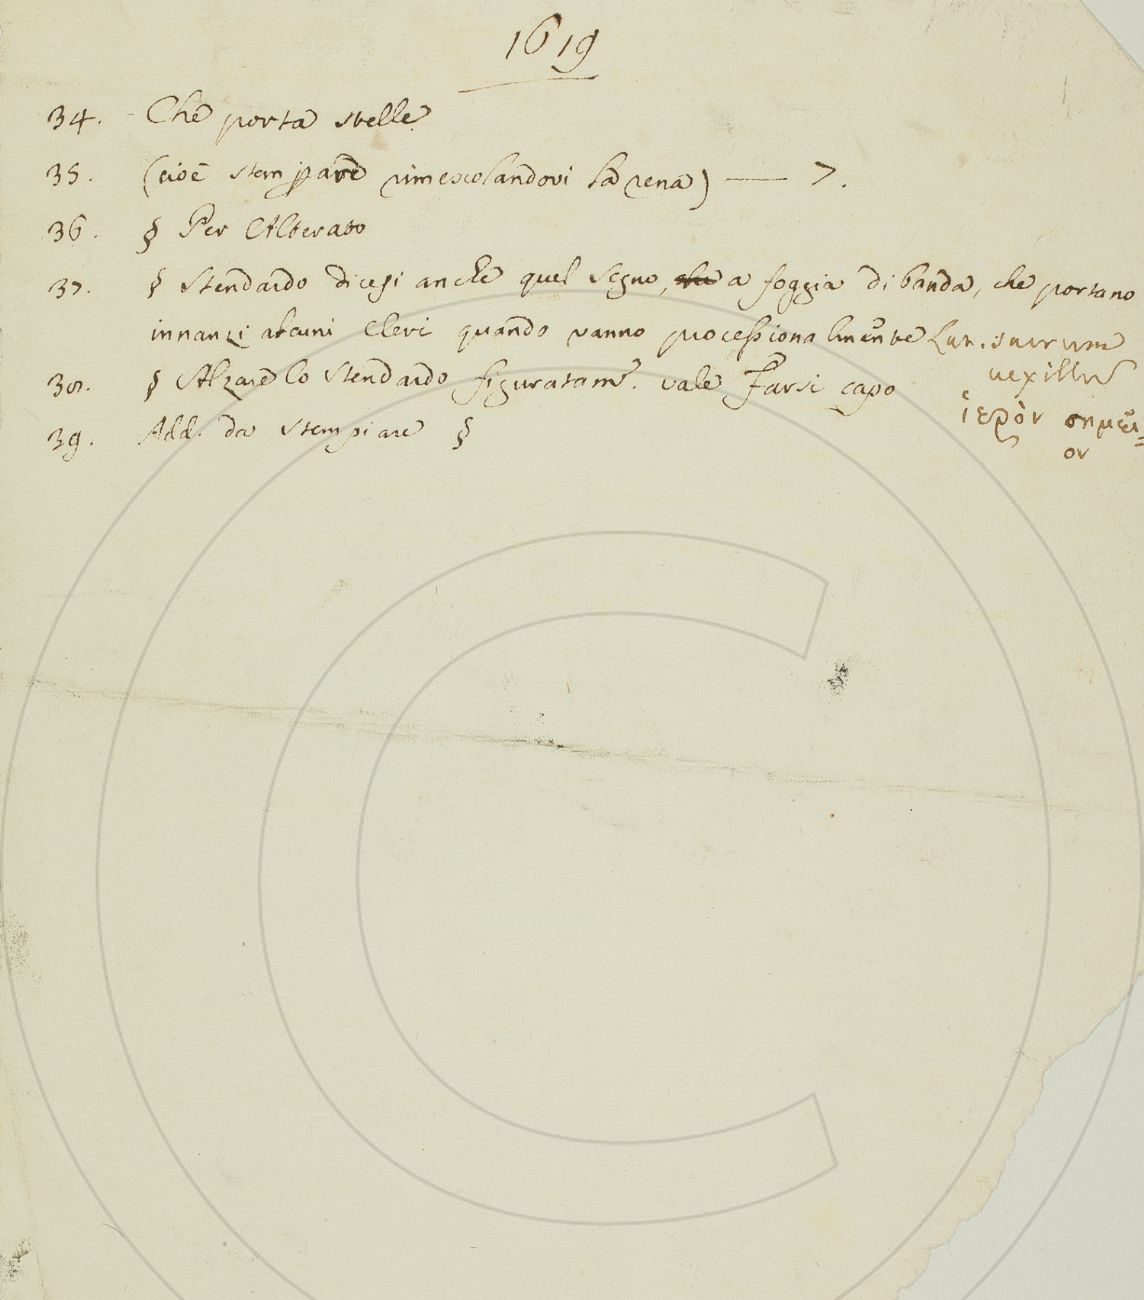 1619
34. Che porta stelle
35. (cioè stemparé rimescolandovi la rena) — 7.
36. § Per Alterato
37. § Stendardo dicesi anche quel segno, a foggia di banda, che portano
innanzi alcuni Cleri quando vanno processionalmente Lat. sacrum
vexillum
38. § Alzare lo Stendardo figuratam. vale Farsi capo
ἱερὸν σημεῖ=
ον
39. Add. da Stempiare §